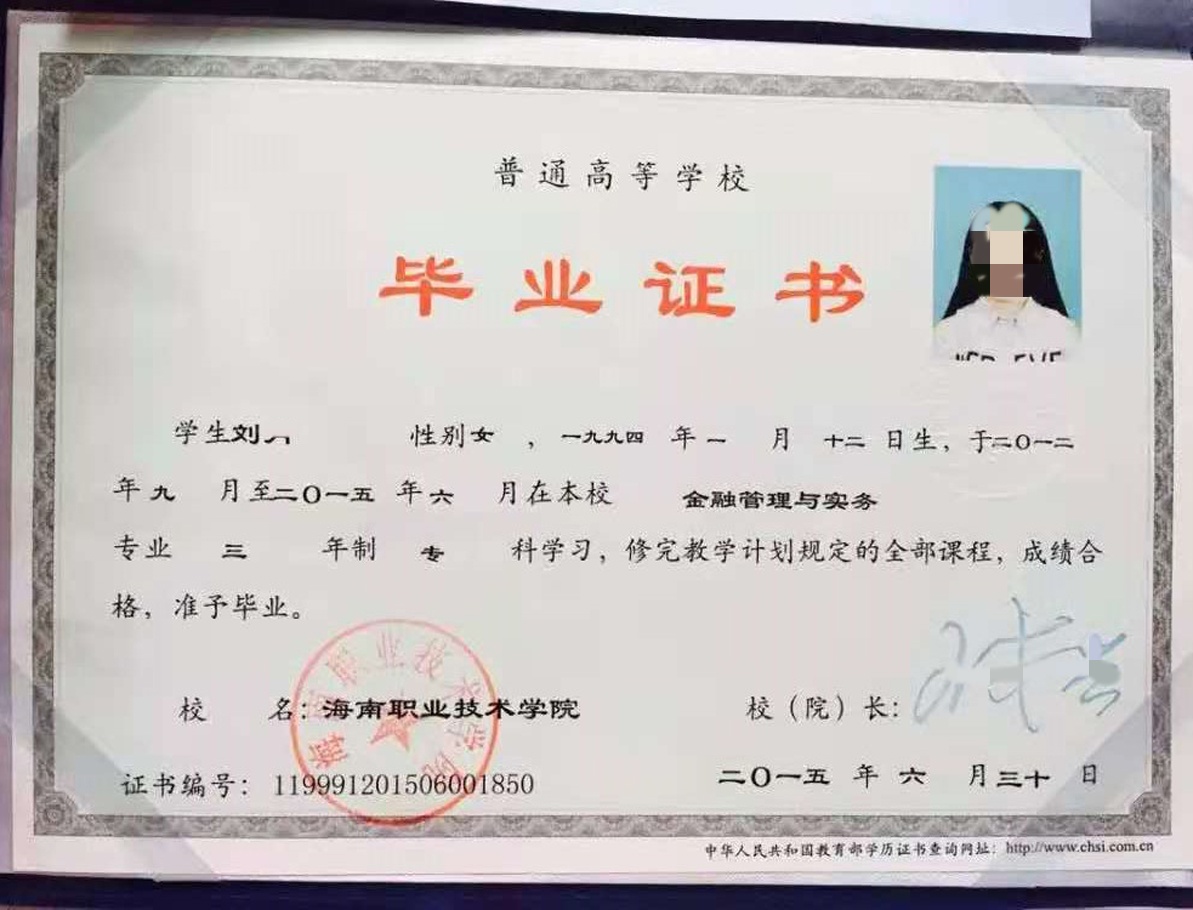 普通高等学校
毕业证书
学生刘 性别女，一九九四年一月十二日生，于二〇一二
年九月至二〇一五年六月在本校 金融管理与实务
专业 三 年制 专 科学习，修完教学计划规定的全部课程，成绩合
格，准予毕业。
海南职业技术学院
校 名：海南职业技术学院 校（院）长：
证书编号：119991201506001850 二〇一五年六月三十日
中华人民共和国教育部学历证书查询网址：http://www.chsi.com.cn